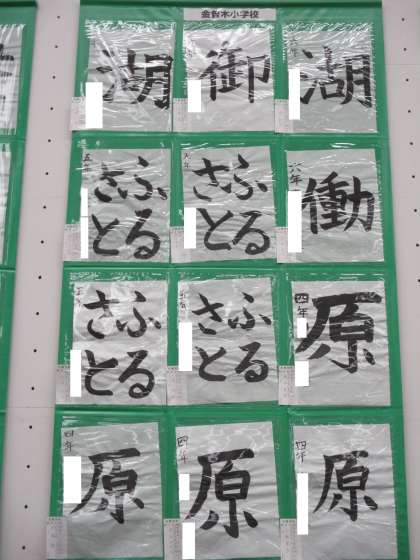 金曽木小学校
湖
御
湖
六年
働
五年
ふる
さと
五年
ふる
さと
四年
原
五年
ふる
さと
五年
ふる
さと
四年
原
四年
原
四年
原